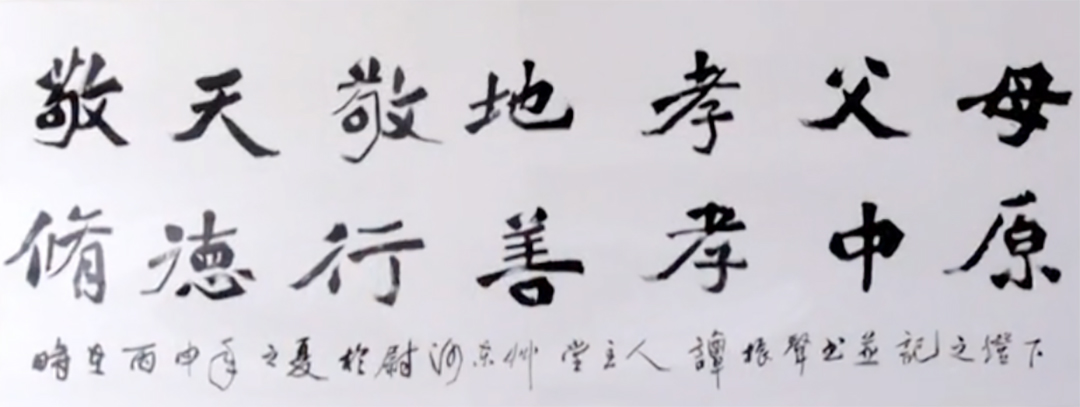 敬天敬地孝父母
脩德行善孝中原
時在丙申年之夏於尉河东艸堂主人譚振聲书並記之燈下